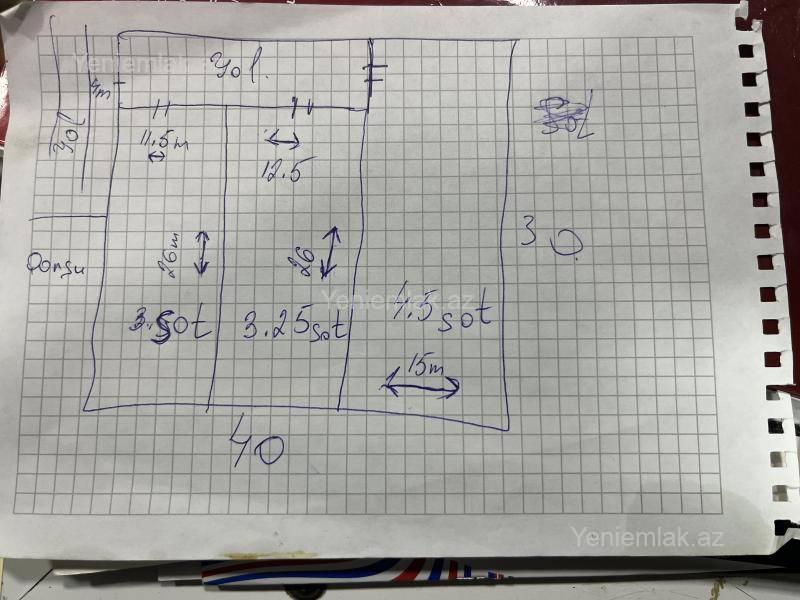 Yeniemlak.az
Yol.
4m
Yol
11.5m
12.5
30
Qonşu
26m
26
3.5sot
3.25sot
4.5sot
Yeniemlak.az
15m
40
Yeniemlak.az